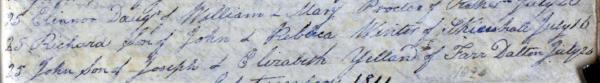 25 Elinnor Daug of William & Mary Procter of July 20
25 Richard Son of John & Rebbeca Winter of July 16
25 John Son of Joseph & Elizabeth Yelland of Farr Dalton July 20
1811